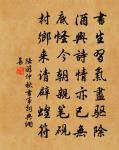 書生習氣盡驅除
酒興詩情亦已無
底怪今朝親筆硯
村鄉來請辟蝗符
陸游仲秋書事詞典網
集